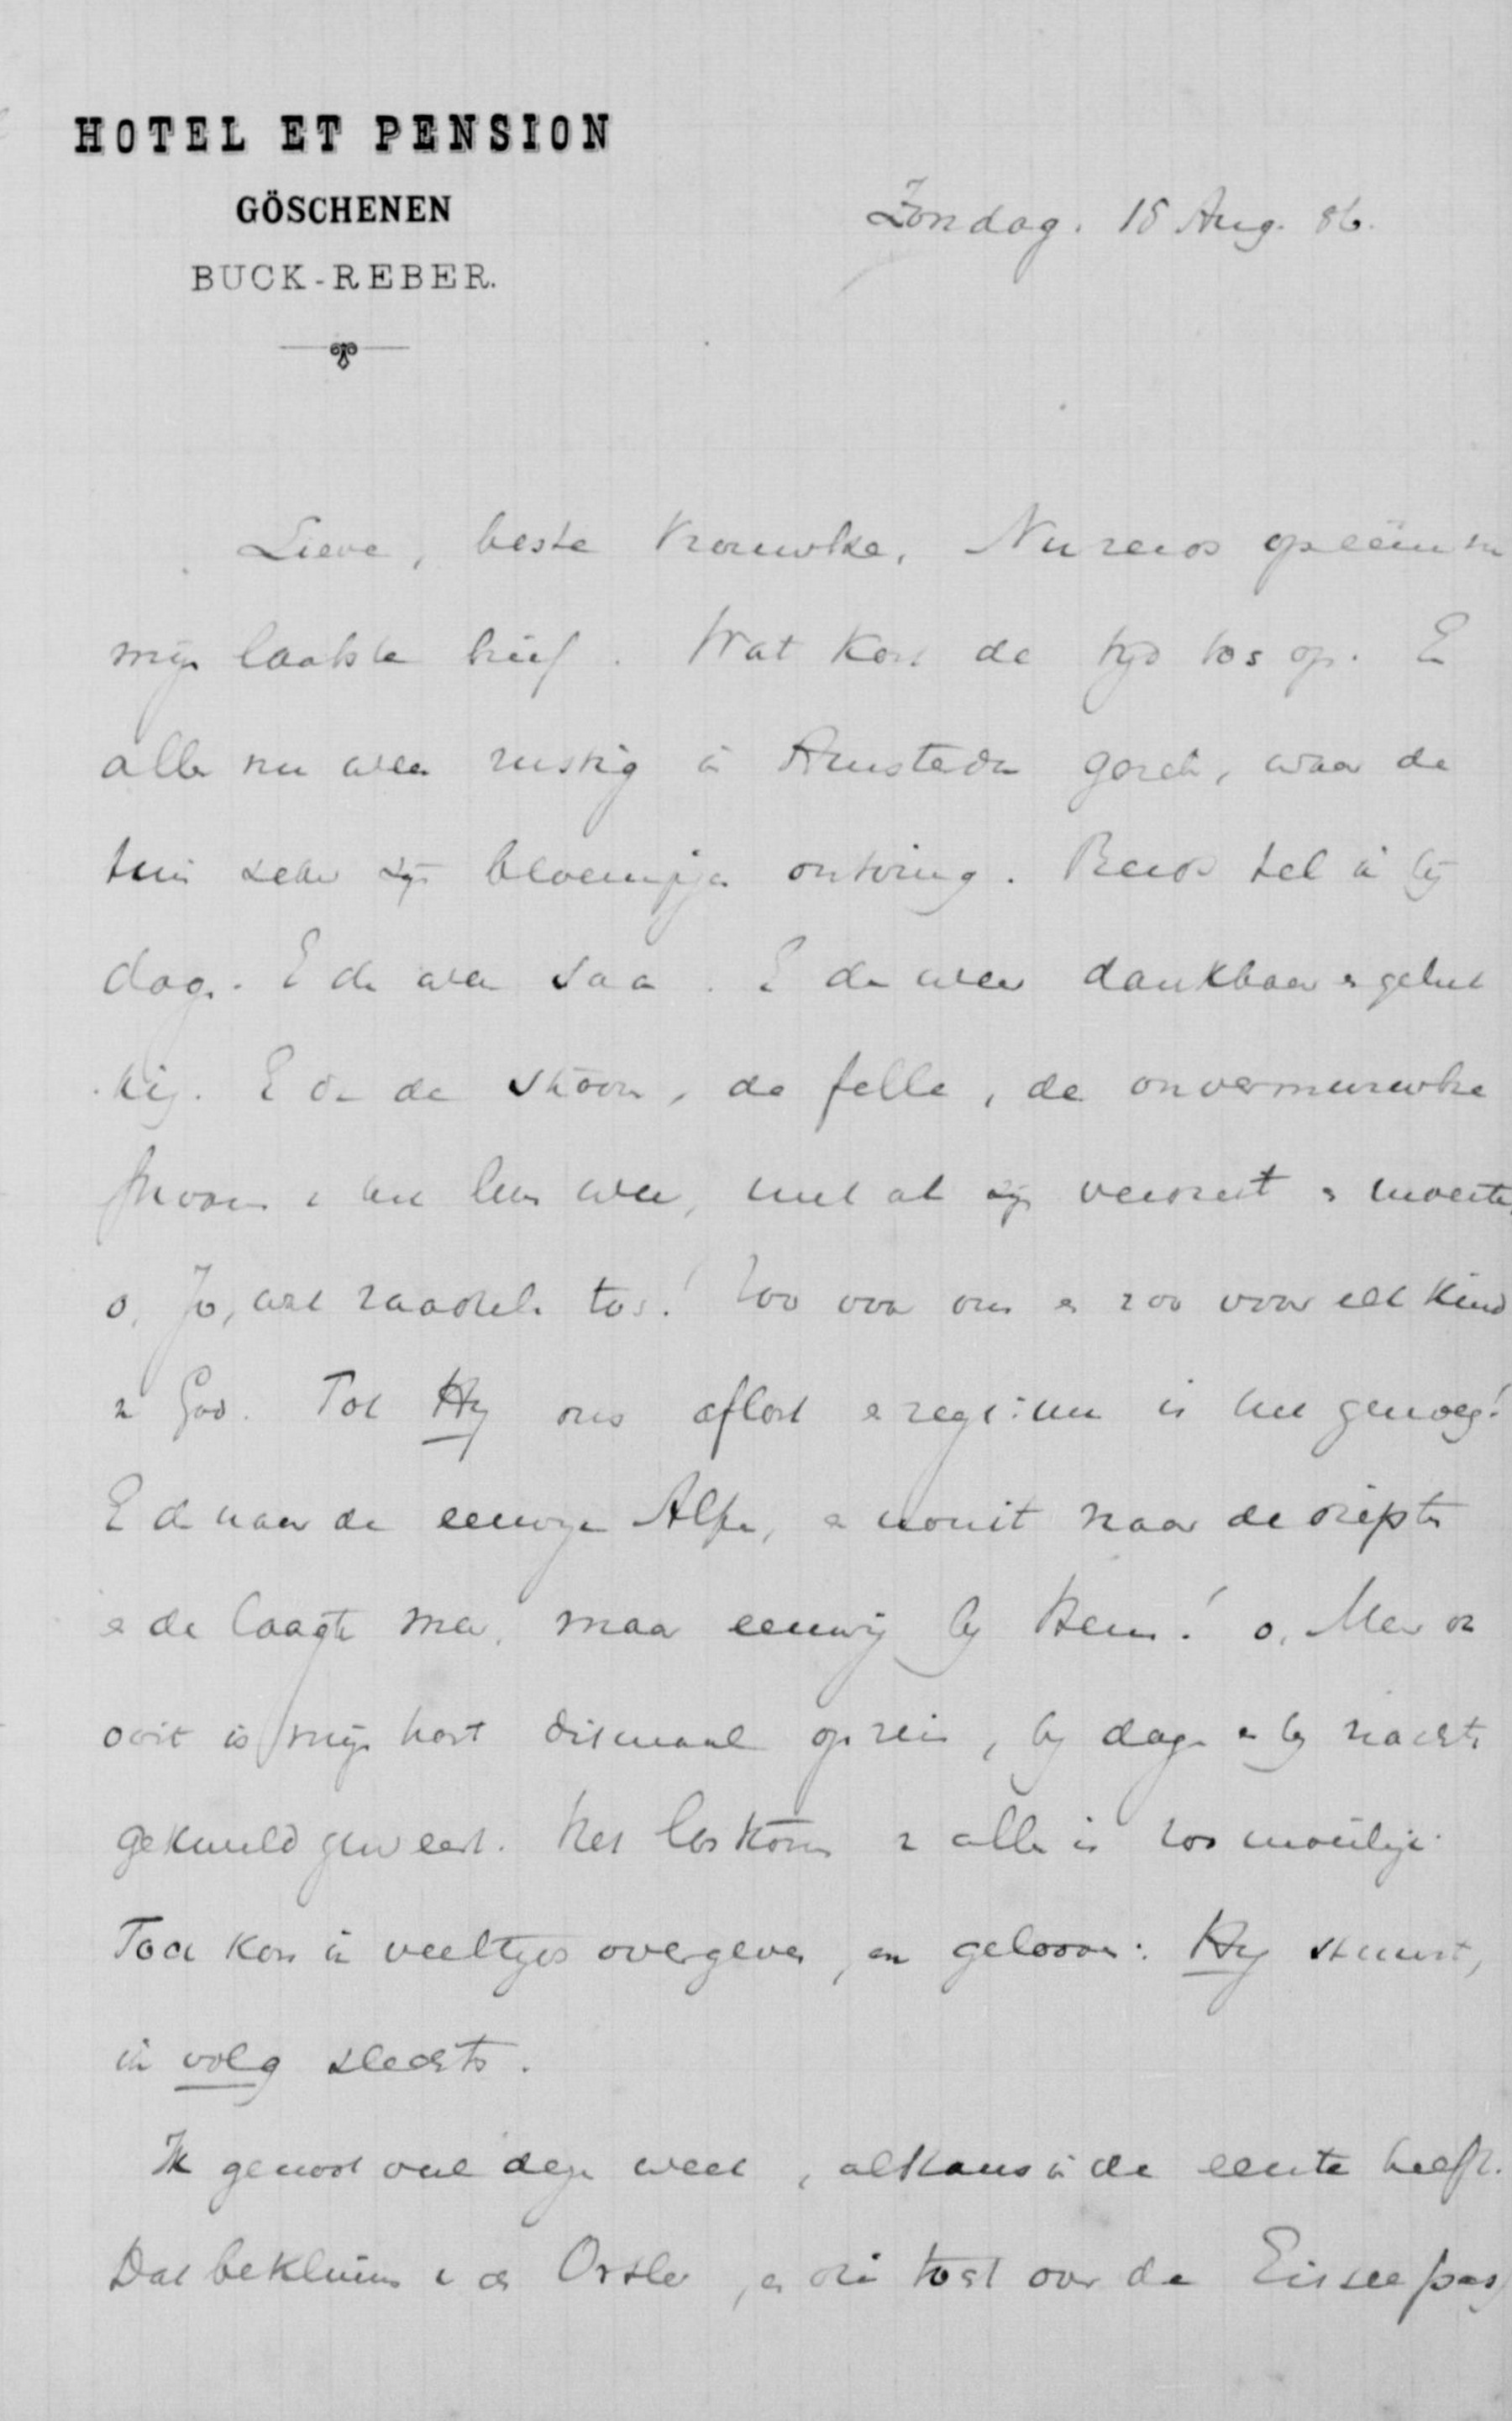 HOTEL ET PENSION
GÖSCHENEN
BUCK-REBER.
Zondag. 15 Aug. 86.
Lieve, beste Vrouwke. Nu reeds
mijn laatste brief. Wat kort de tijd toch op. En
alle nu weer rustig in Amsterdam, waar de
tuin zeker zijn bloempjes ontving. Reeds tel ik bij
dagen. En dan weer saam. En dan weer dankbaar en geluk
kig. En dan de stroom, de felle, de onvermurwbre
stroom van het leven weer, met al zijn verdriet en moeite,
o, Jo, wat raadsels toch! Zoo voor ons en zoo voor elk kind
van God. Tot Hij ons aflost en zegt: nu is het genoeg!
En dan naar de eeuwige Alpen, en nooit naar de diepte
en de laagte meer, maar eeuwig bij Hem! o, Meer dan
ooit is mijn hart ditmaal op reis, bij dag en bij nacht
gekweld geweest. Het loskomen van alles is zoo moeilijk.
Toch kon ik veeltijds overgeven, en gelooven: Hij stuurt,
ik volg slechts.
Ik genoot veel deze week, althans in de eerste helft.
Dat beklimmen van de Ortler, en die tocht over de Eisseepas